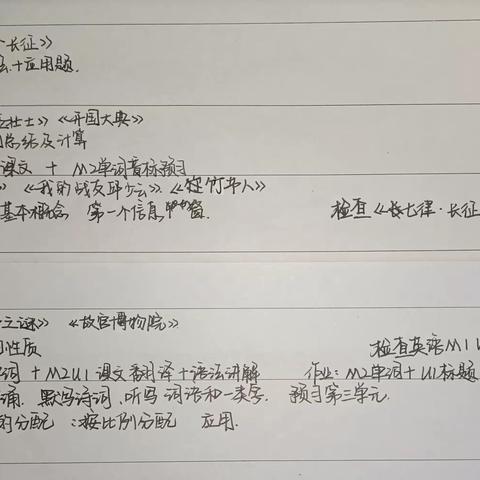 ·长征》
+应用题.
壮士》《开国大典》
总结及计算
课文 + M2单词音标预习
》《我的战友邱少云》《竹节人》
基本概念 第一个信息窗. 检查《七律·长征
之谜》《故宫博物院》
性质 检查英语M1U
词 + M2U1课文翻译+语法讲解 作业: M2单词+U1标题
诵. 默写诗词,听写词语和一类字. 预习第三单元.
的分配:按比例分配 应用.